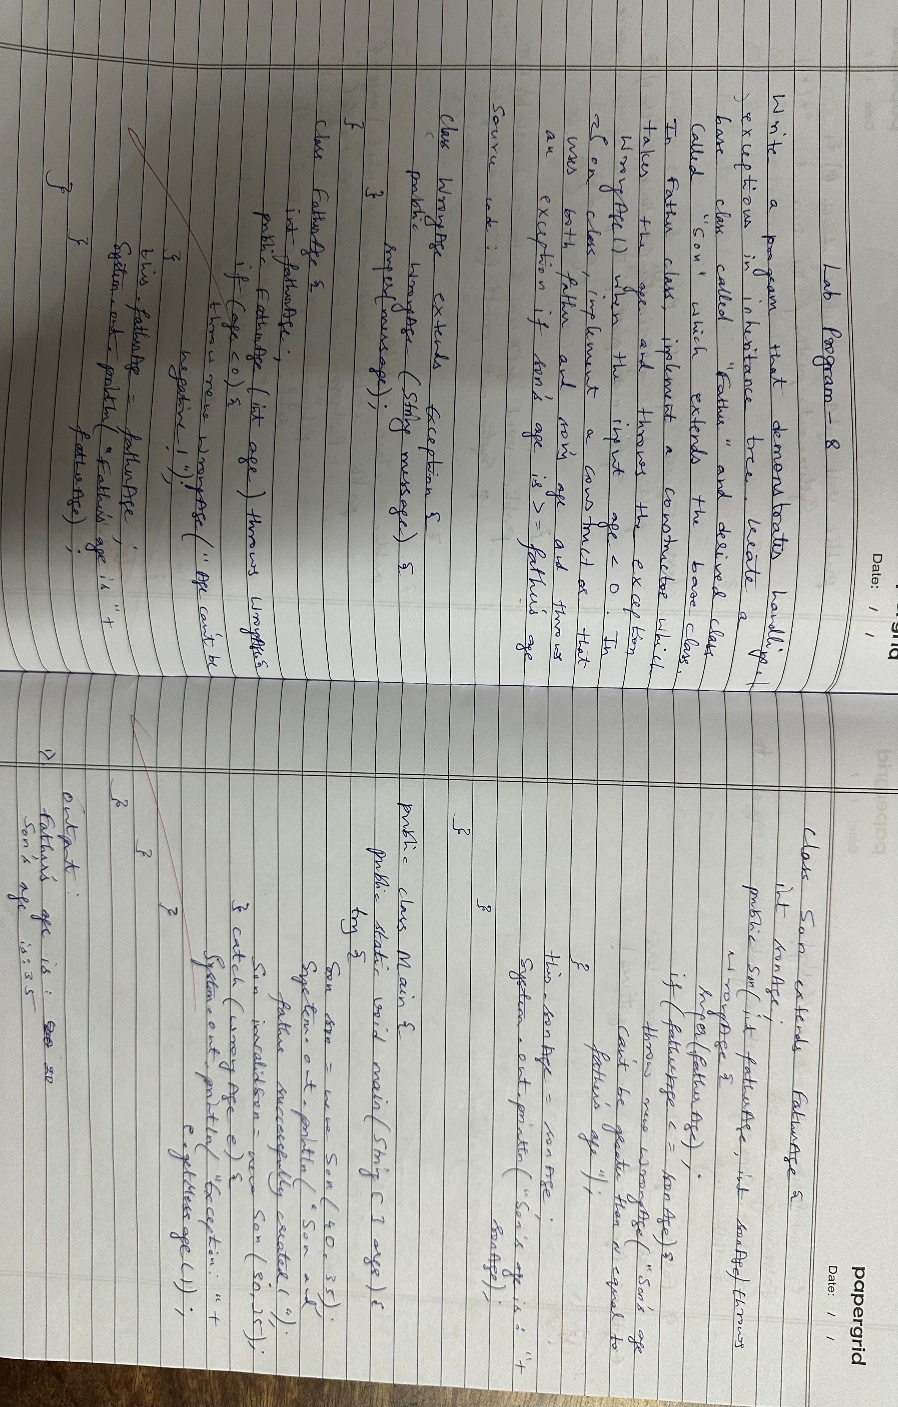 Date: / /
Lab Program - 8
Write a program that demonstrates handling of
exceptions in inheritance tree. Create a
base class called "Father" and derived class
called "Son" which extends the base class.
In Father class, implement a constructor which
takes the age and throws the exception
WrongAge() when the input age < 0. In
Son class, implement a constructor that
uses both father and son's age and throws
an exception if son's age is >= father's age
Source code :
class WrongAge extends Exception {
public WrongAge (String message) {
super(message);
}
}
class FatherAge {
int fatherAge;
public FatherAge (int age) throws WrongAge {
if (age < 0) {
throw new WrongAge("Age can't be
negative!");
}
this.fatherAge = fatherAge;
System.out.println("Father's age is" +
fatherAge);
}
}
papergrid
Date: / /
class Son extends FatherAge {
int sonAge;
public Son(int fatherAge, int sonAge) throws
WrongAge {
super(fatherAge);
if (fatherAge <= sonAge) {
throw new WrongAge("Son's age
can't be greater than or equal to
father's age");
}
this.sonAge = sonAge;
System.out.println("Son's age is: " +
sonAge);
}
}
public class Main {
public static void main(String [ ] args) {
try {
Son son = new Son(40, 35);
System.out.println("Son and
father successfully created!");
Son invalidSon = new Son(20, 25);
} catch (WrongAge e) {
System.out.println("Exception: " +
e.getMessage());
}
}
}
Output :
1) Father's age is : 20
Son's age is : 35